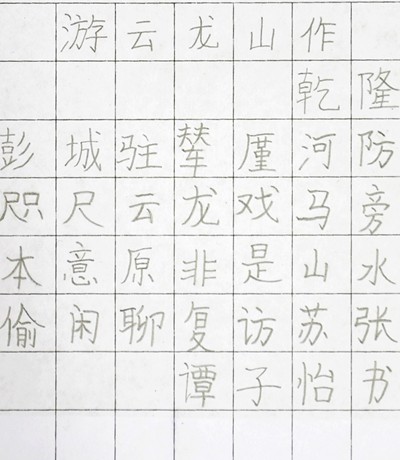 游云龙山作
乾隆
彭城驻辇厪河防
咫尺云龙戏马旁
本意原非是山水
偷闲聊复访苏张
谭子怡书